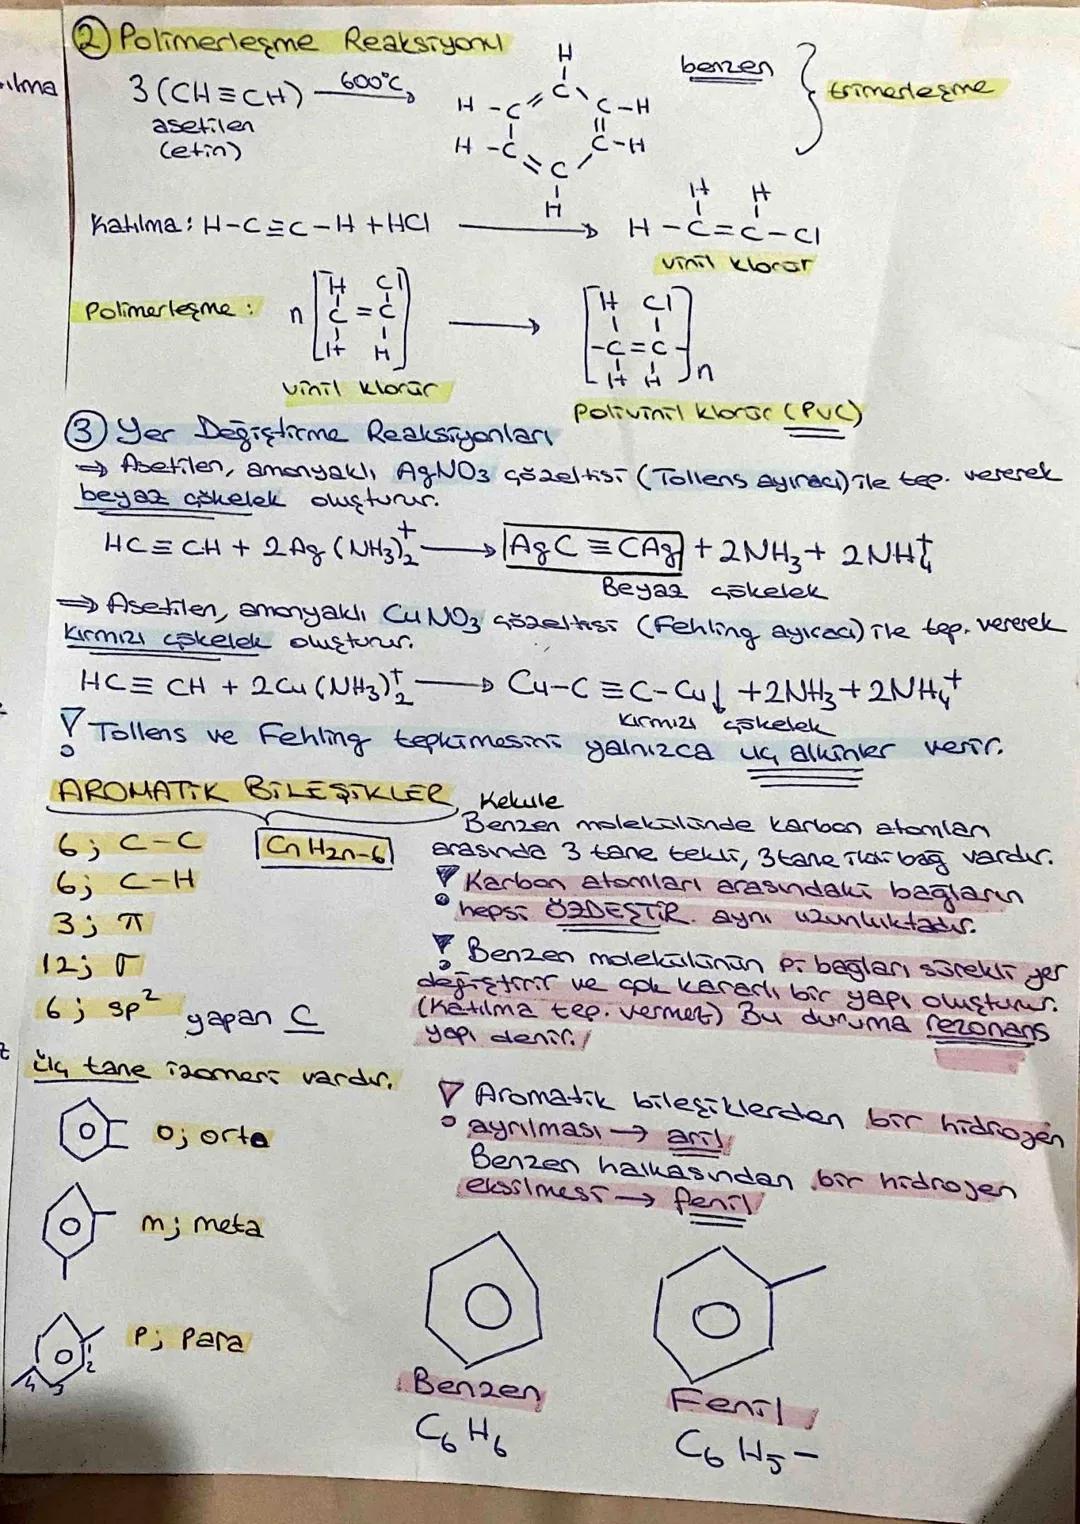 ② Polimerleşme Reaksiyonu
ılma
3 (CH≡CH) 600°C →
asetilen
(etin)
H
H - C C C - H
H - C C C - H
H
benzen
trimerleşme
Katılma : H-C≡C-H + HCl → H - C = C - Cl
H H
vinil klorür
Polimerleşme : n [H Cl C = C H H] → [H Cl -C = C- H H]n
vinil klorür
Polivinil klorür (PVC)
③ Yer Değiştirme Reaksiyonları
⇒ Asetilen, amonyaklı AgNO3 çözeltisi (Tollens ayıracı) ile tep. vererek
beyaz çökelek oluşturur.
HC ≡ CH + 2Ag (NH3)2+ → AgC ≡ CAg + 2NH3 + 2NH4+
Beyaz çökelek
⇒ Asetilen, amonyaklı CuNO3 çözeltisi (Fehling ayıracı) ile tep. vererek
kırmızı çökelek oluşturur.
HC ≡ CH + 2Cu (NH3)2+ → Cu-C ≡ C-Cu↓ + 2NH3 + 2NH4+
kırmızı çökelek
! Tollens ve Fehling tepkimesini yalnızca uç alkinler verir.
AROMATİK BİLEŞİKLER
CnH2n-6
6; C-C
6; C-H
3; π
12; σ
6; sp2 yapan C
üç tane izomeri vardır.
o; orto
m; meta
p; para
1
2
3
4
Kekule
Benzen molekülünde karbon atomları
arasında 3 tane tekli, 3 tane ikili bağ vardır.
! Karbon atomları arasındaki bağların
hepsi ÖZDEŞTİR. aynı uzunluktadır.
! Benzen molekülünün pi bağları sürekli yer
değiştirir ve çok kararlı bir yapı oluşturur.
(Katılma tep. vermez) Bu duruma rezonans
yapı denir.
! Aromatik bileşiklerden bir hidrojen
ayrılması → aril
Benzen halkasından bir hidrojen
eksilmesi → fenil
Benzen
C6H6
Fenil
C6H5-